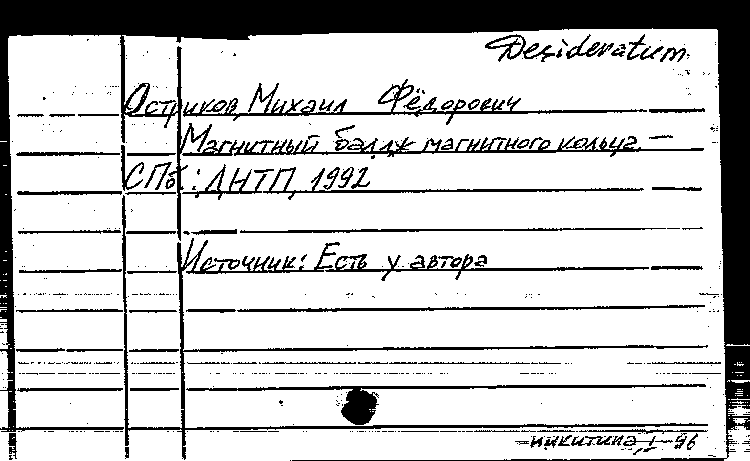 Desideratum
Остриков, Михаил Фёдорович
Магнитный балдж магнитного кольца. —
СПб: ДНТП, 1992
Источник: Есть у автора
никитина, I-96